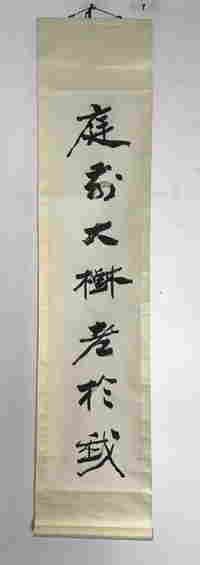 庭前大樹老於我